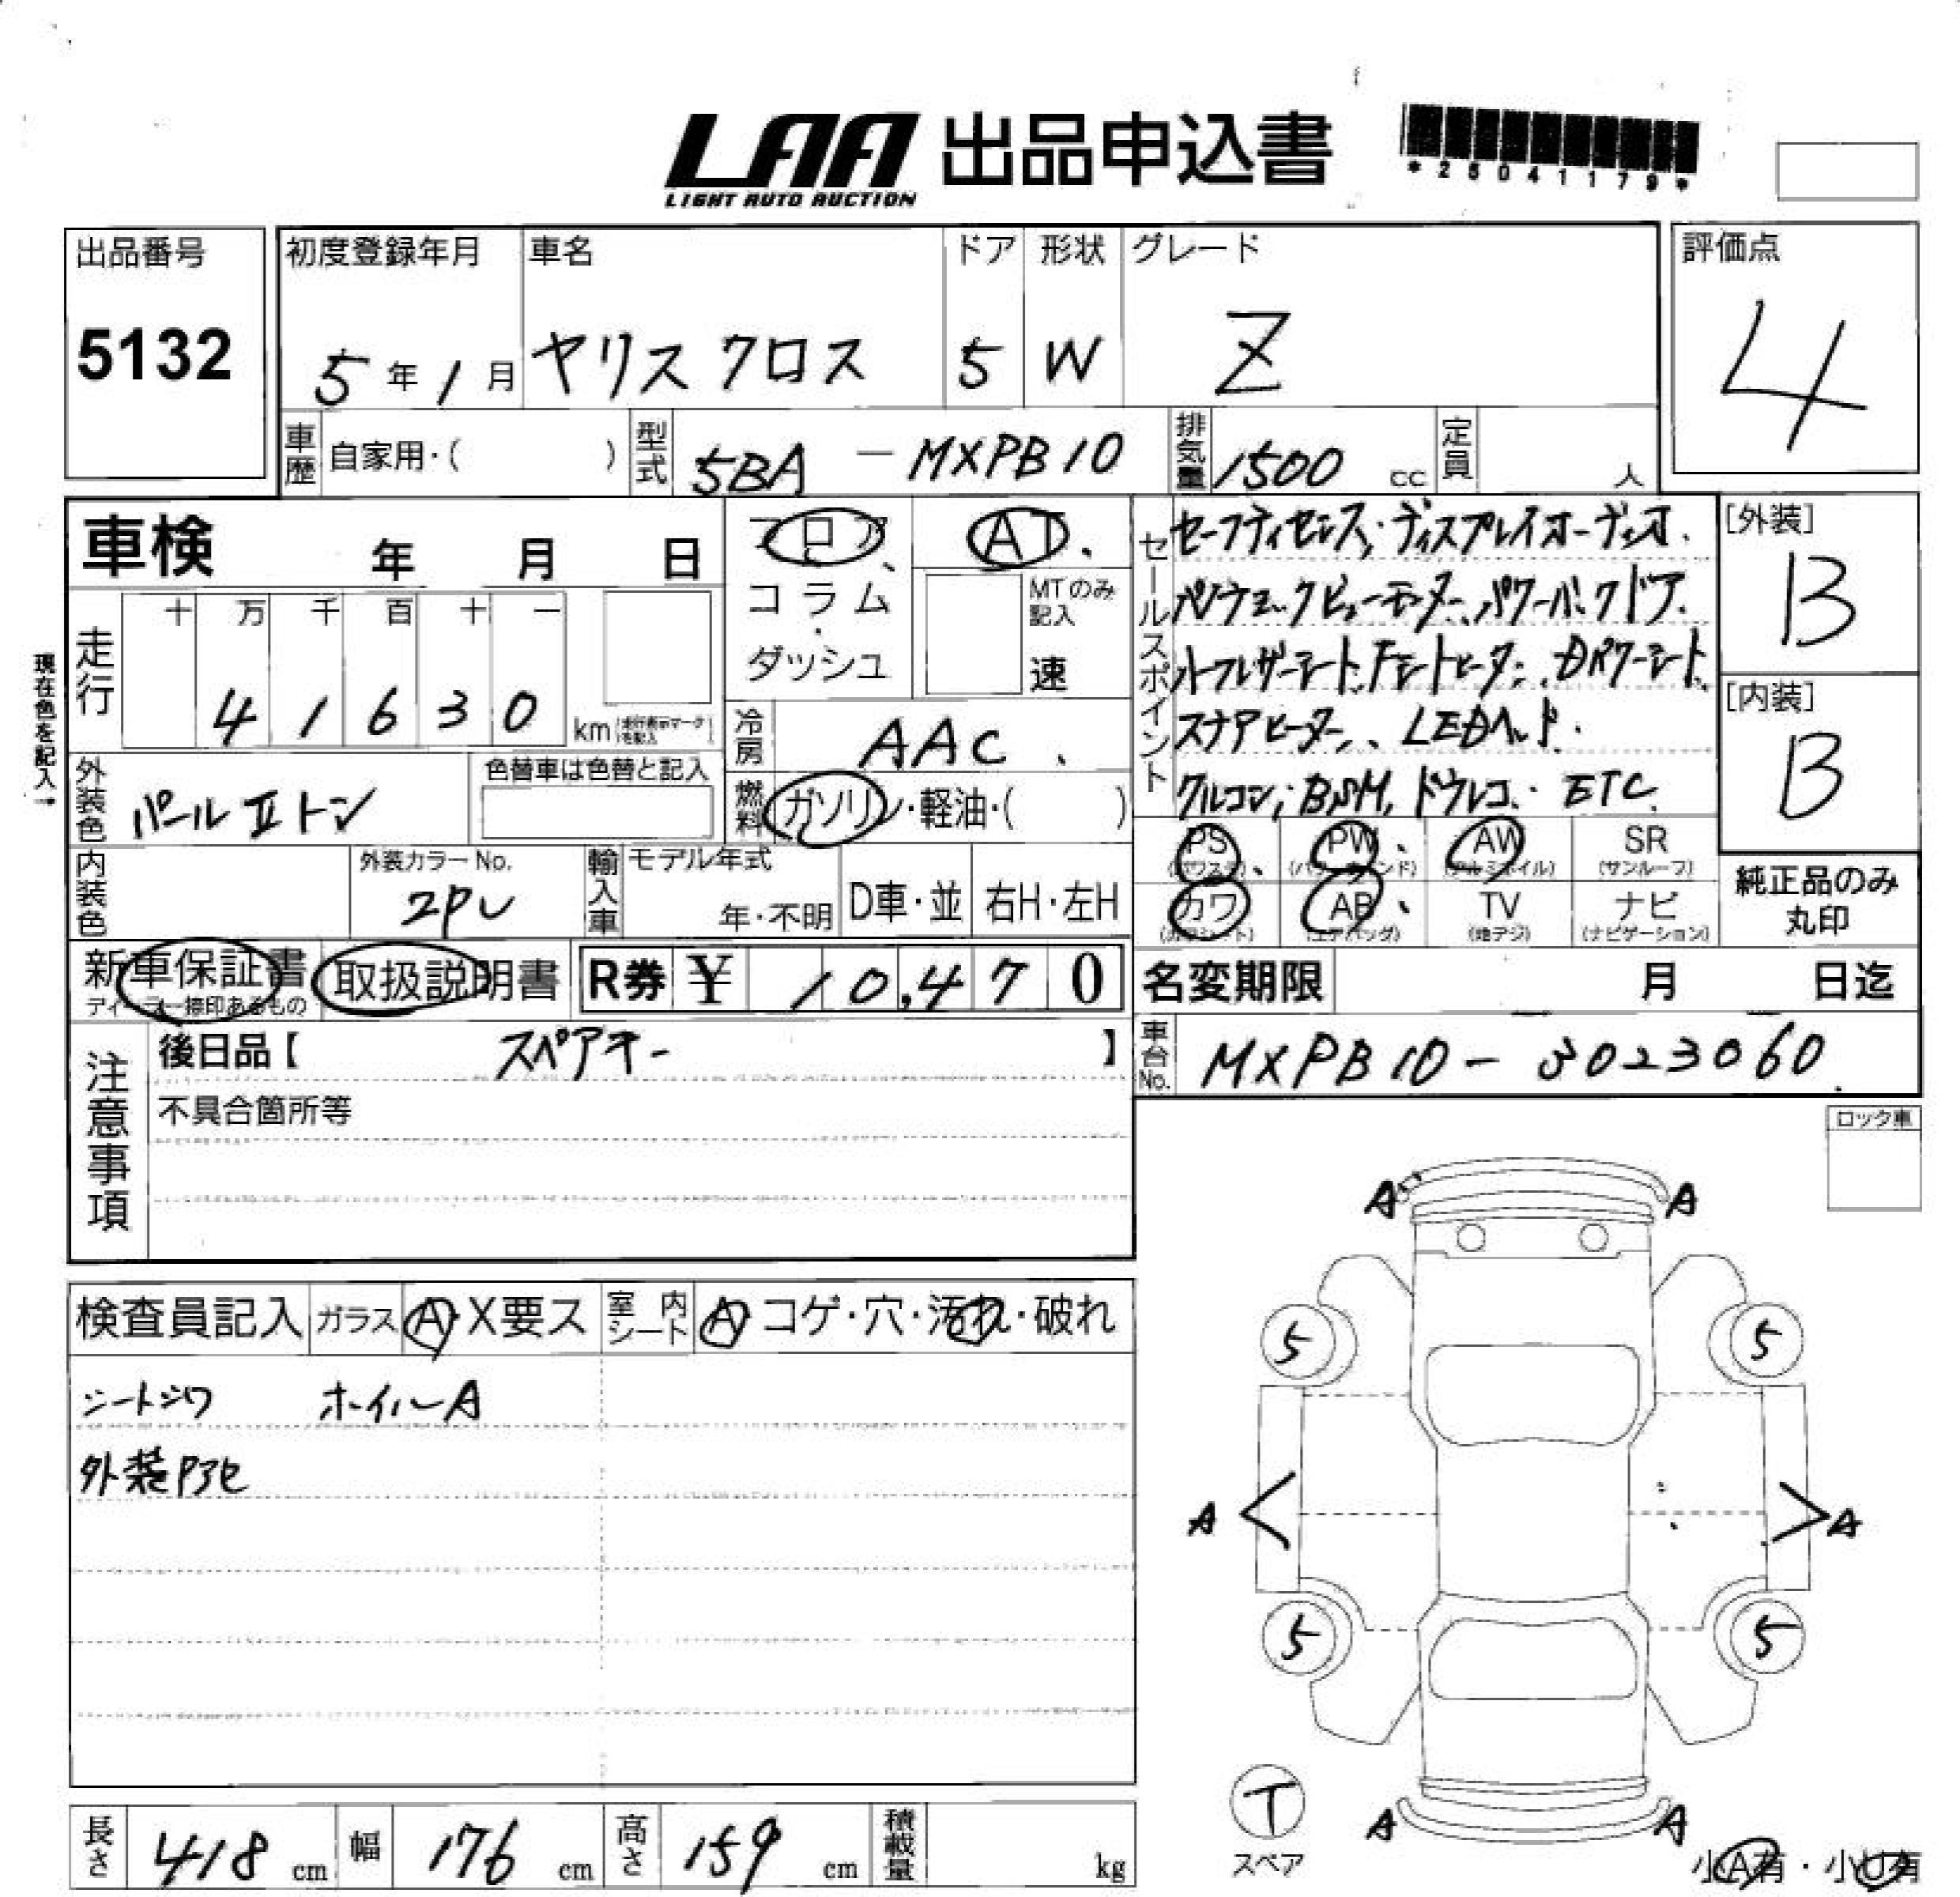 LAA 出品申込書
LIGHT AUTO AUCTION
*25041179*
出品番号
5132
初度登録年月
5年1月
車名
ヤリス クロス
ドア
5
形状
W
グレード
Z
評価点
4
車歴
自家用・( )
型式
5BA - MXPB10
排気量
1500 cc
定員
人
車検 年 月 日
フロア、
コラム・
ダッシュ
AT、
MTのみ記入
速
セールスポイント
セーフティセンス、ディスプレイオーディオ、
パノラミックビューモニター、パワーバックドア、
ハーフレザーシート、Fシートヒーター、Dパワーシート、
ステアヒーター、LEDヘッド、
クルコン、BSM、ドラレコ、ETC、
[外装]
B
[内装]
B
現在色を記入→
走行
十 万 千 百 十 一
4 1 6 3 0 km
走行表示マークを記入
冷房
AAC、
外装色
パールⅡトン
色替車は色替と記入
燃料
ガソリン・軽油・( )
PS、
(パワステ)
PW、
(パワーウィンド)
AW
(アルミホイル)
SR
(サンルーフ)
カワ
(カワシート)
AB、
(エアバッグ)
TV
(地デジ)
ナビ
(ナビゲーション)
純正品のみ
丸印
内装色
外装カラーNo.
2PU
輸入車
モデル年式
年・不明
D車・並
右H・左H
新車保証書
ディーラー捺印あるもの
取扱説明書
R券 ¥ 10,470
名変期限 月 日迄
車台No.
MXPB10-3023060
注意事項
後日品【 スペアキー 】
不具合箇所等
ロック車
検査員記入
ガラス
A・X要ス
室内シート
A コゲ・穴・汚れ・破れ
シートシワ ホイルA
外装アアセ
A A
5 5
A A
5 5
A A
T
スペア
小A有・小U有
長さ 418 cm
幅 176 cm
高さ 159 cm
積載量 kg